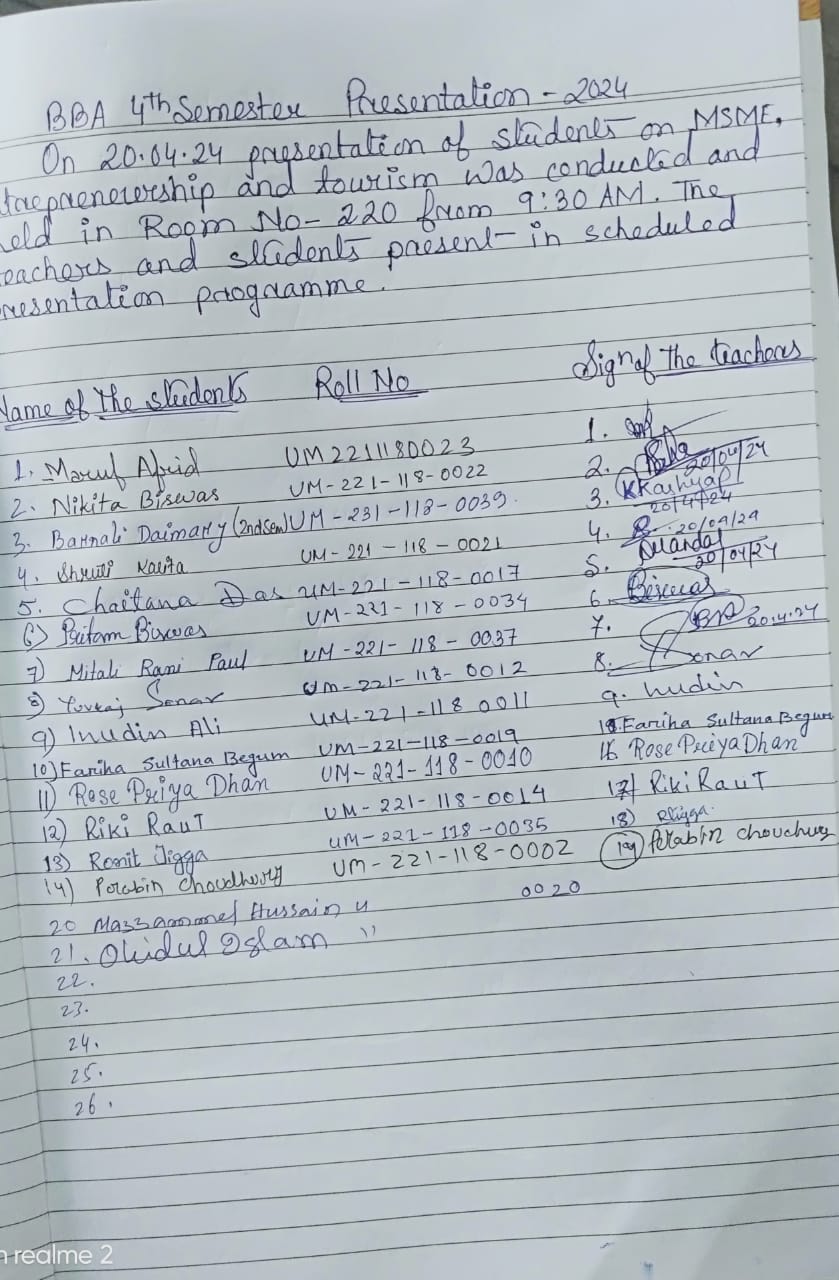 BBA 4th Semester Presentation - 2024
On 20.04.24 presentation of students on MSME,
and tourism was conducted and
eld in Room No - 220 from 9:30 AM. The
eachers and students present in scheduled
resentation programme.
Name of the students Roll No Sign of the teachers
1. Maruf Afrid UM2211180023 1.
2. Nikita Biswas UM-221-118-0022 2. 20/04/24
3. Barnali Daimary (2nd sem) UM-231-118-0039. 3. KKashyap 20/4/24
4. Shruti UM-221-118-0021 4. 20/04/24
5. Chaitana Das UM-221-118-0017 5. Mandal 20/04/24
6) Pritam Biswas UM-221-118-0034 6. Biswas
7) Mitali Rani Paul UM-221-118-0037 7. 20.4.24
8) Yuvraj Sonar UM-221-118-0012 8. Sonar
9) Inudin Ali UM-221-118 0011 9. Inudin
10) Fariha Sultana Begum UM-221-118-0019 Fariha Sultana Begum
11) Rose Priya Dhan UM-221-118-0010 Rose Priya Dhan
12) Riki Raut UM-221-118-0014 Riki Raut
13) Romit Jigga UM-221-118-0035 18) RJigga.
14) Porabin Choudhury UM-221-118-0002 19) Porabin choudhury
20 Hussain 0020
21. Ohidul Islam "
22.
23.
24.
25.
26.
realme 2